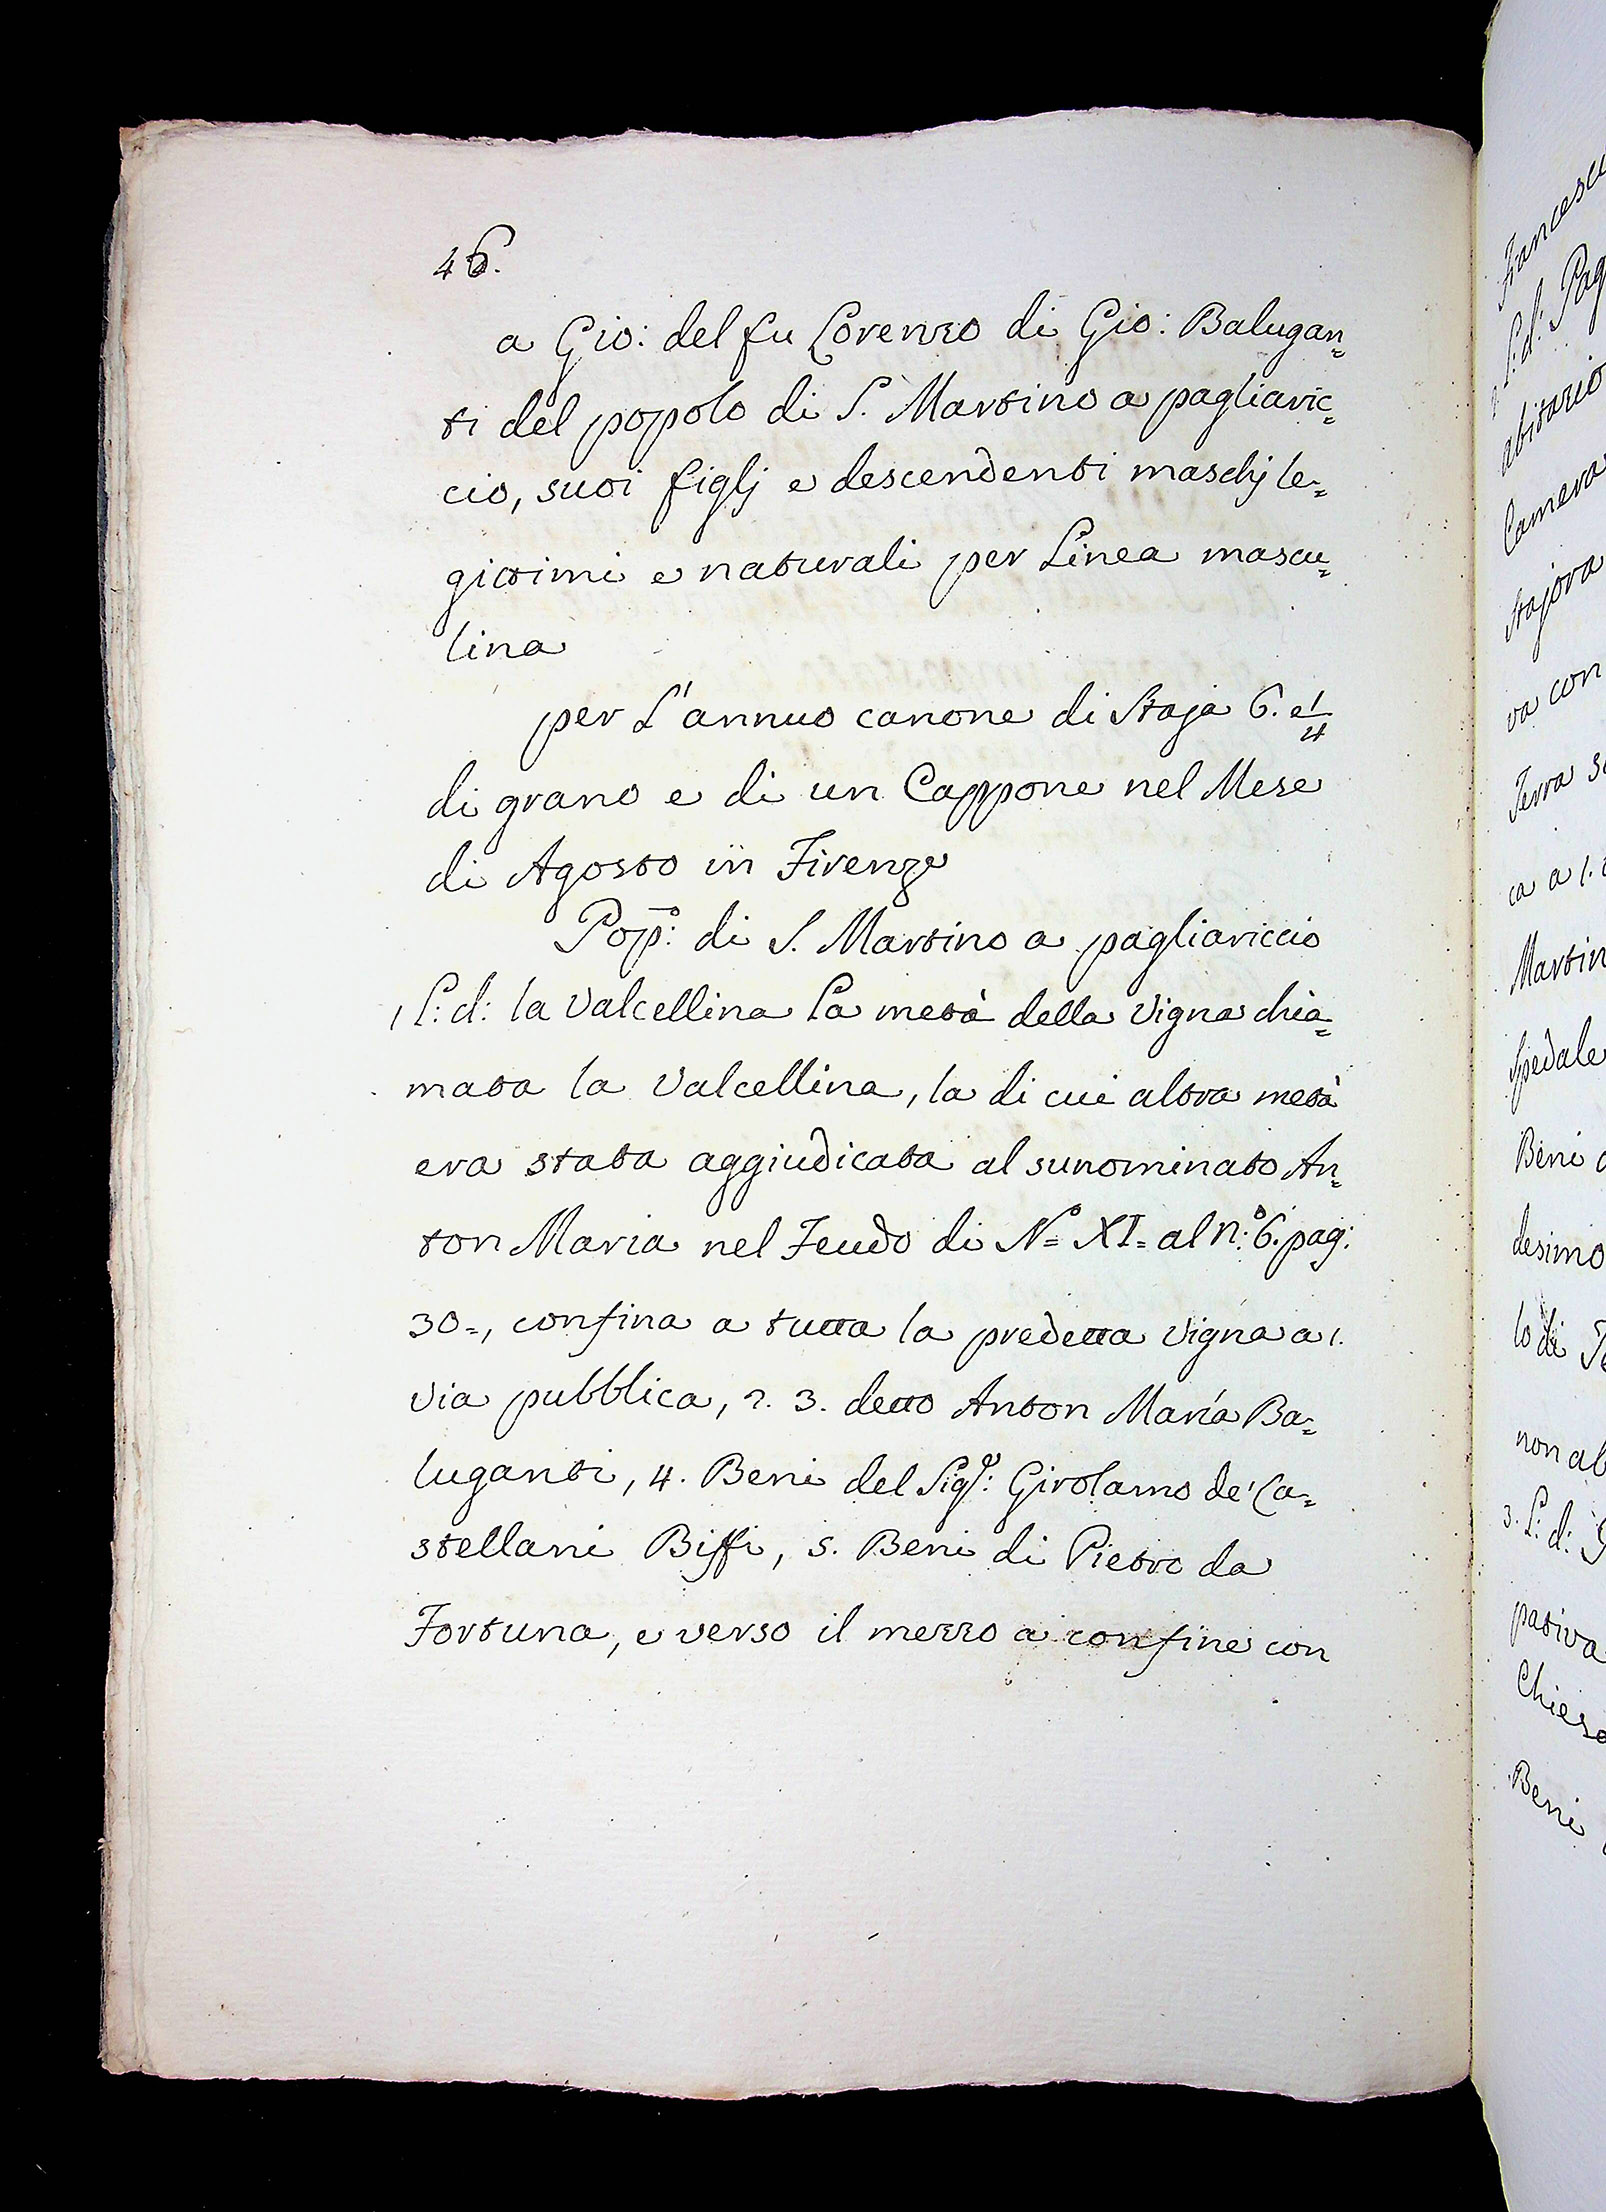 46.
a Gio: del fu Lorenzo di Gio: Balugan=
ti del popolo di S. Martino a pagliaric=
cio, suoi figlj e descendenti maschj le=
gittimi e naturali per Linea mascu=
lina
per L'annuo canone di Staja 6. e 1/4
di grano e di un Cappone nel Mese
di Agosto in Firenze
Pop:o di S. Martino a pagliariccio
1 L: d: la Valcellina La metà della Vigna chia=
mata la Valcellina, la di cui altra metà
era stata aggiudicata al sunominato An=
ton Maria nel Feudo di No= XI= al n:o 6. pag:
30=, confina a tutta la predetta Vigna a 1.
Via pubblica, 2. 3. detto Anton Maria Ba=
luganti, 4. Beni del Sig:e Girolamo de' Ca=
stellani Biffi, 5. Beni di Pietro da
Fortuna, e verso il mezzo a confine con
L: d: Pag
abitazio
Camera
Stajora
va con
Terra
ca a 1.
Martin
Spedale
Beni
desimo
lo di
non
3. L: d:
pativa
Chiesa
Beni